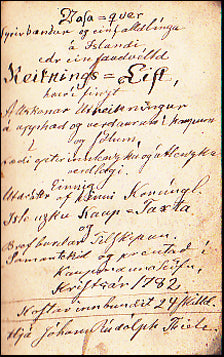 Vasa=qver
fyrir bændur og einfalldlinga
á Islandi
edr ein faudvölld
Reiknings=List,
hvori finzt
Allskonar Utreikningur
á upphæd og verdaurum í kaupum
og sölum,
bædi eptir innlenzku og útlenzku
verdlagi.
Einnig
Utdráttr af þeirri Konúngl.
Islenzku Kaup=Taxta
og
Brefburdar Tilskipun.
Samantekid og prentad í
Kaupmannahöfn,
Kristsár 1782
Kostar innbundit 24 skild.
Hjá Jóhann Rúdolph Thiele